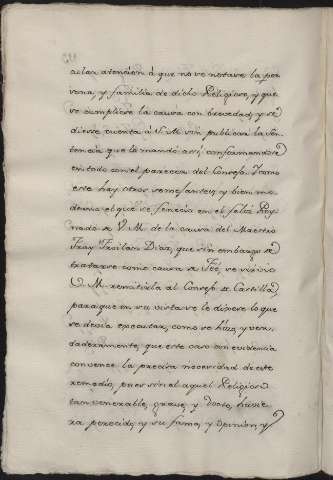 a la atención á que no se notase la per
sona, y familia de dicho Religioso, y que
se cumpliese la causa con brevedad, y se
diese cuenta á V. M. sin publicar la Sen
tencia que le mandó assi, conformandose
en todo con el parecer del Consejo. Y como
este hay otros semejantes, y bien mo
derno el que se fenecio en el feliz Rey
nado de V. M. de la causa del Maestro
Fray Froilan Diaz, que sin embargo de
tratarse como causa de Feé, se sirvio
V. M. remitirla al Consejo de Castilla,
para que en su vista se le dixese lo que
se devia executar, como se hizo, y verda
daderamente, que este caso con evidencia
convence la precisa necesidad de este
remedio, pues sin el aquel Religioso
tan venerable, grave, y docto, huvie
ra perecido, y su fama, y opinion, y